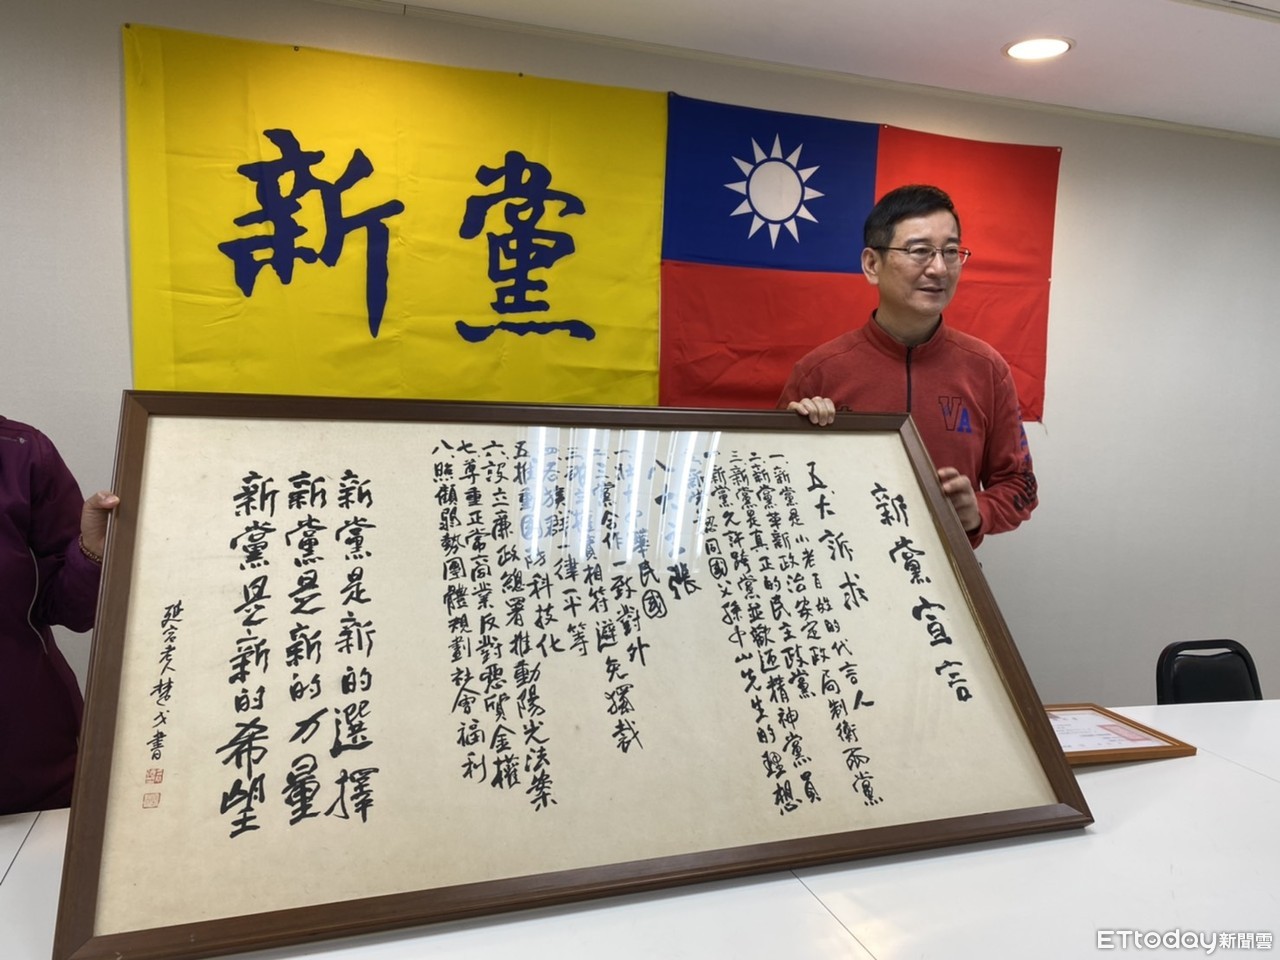 新黨
VA
新黨宣言
五大訴求
一新黨是小老百姓的代言人
二新黨革新政治安定政局制衡兩黨
三新黨是真正的民主政黨
新黨允許跨黨並歡迎精神黨員
新黨認同國父孫中山先生的理想
八大主張
一壯大中華民國
二三黨合作一致對外
三權責相符避免獨裁
四各族群一律平等
五推動國防科技化
六設立廉政總署推動陽光法案
七尊重正常商業反對惡質金權
八照顧弱勢團體規劃社會福利
新黨是新的選擇
新黨是新的力量
新黨是新的希望
延宕老人楚戈書
ETtoday新聞雲